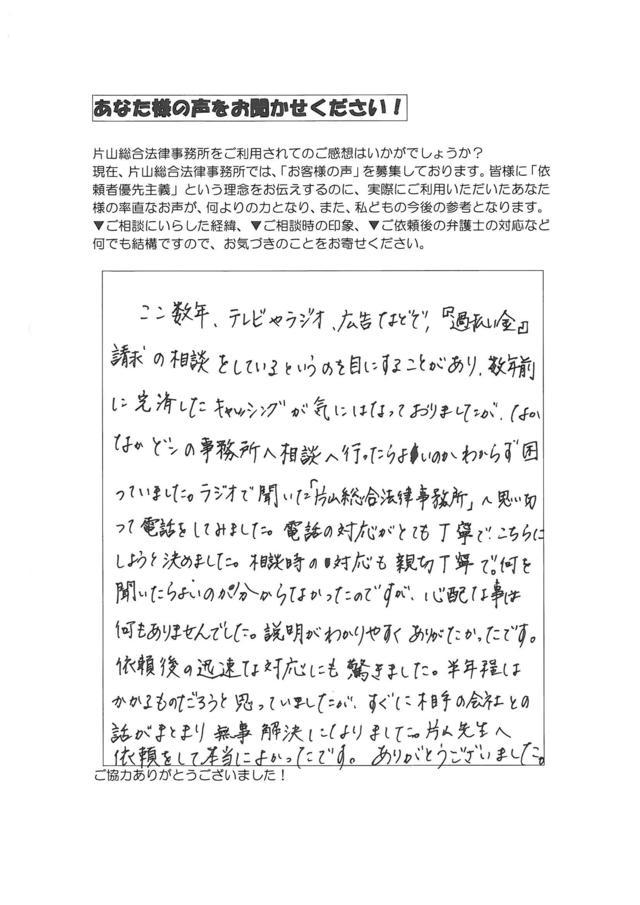 あなた様の声をお聞かせください！
片山総合法律事務所をご利用されてのご感想はいかがでしょうか？
現在、片山総合法律事務所では、「お客様の声」を募集しております。皆様に「依
頼者優先主義」という理念をお伝えするのに、実際にご利用いただいたあなた
様の率直なお声が、何よりの力となり、また、私どもの今後の参考となります。
▼ご相談にいらした経緯、▼ご相談時の印象、▼ご依頼後の弁護士の対応など
何でも結構ですので、お気づきのことをお寄せください。
ここ数年、テレビやラジオ、広告などで、『過払い金』
請求の相談をしているというのを目にすることがあり、数年前
に完済したキャッシングが気にはなっておりましたが、なか
なかどこの事務所へ相談へ行ったらよいのかわからず困
っていました。ラジオで聞いた「片山総合法律事務所」へ思い切
って電話をしてみました。電話の対応がとても丁寧で、こちらに
しようと決めました。相談時の対応も親切丁寧で。何を
聞いたらよいのか分からなかったのですが、心配な事は
何もありませんでした。説明がわかりやすくありがたかったです。
依頼後の迅速な対応にも驚きました。半年程は
かかるものだろうと思っていましたが、すぐに相手の会社との
話がまとまり無事解決になりました。片山先生へ
依頼をして本当によかったです。ありがとうございました。
ご協力ありがとうございました！